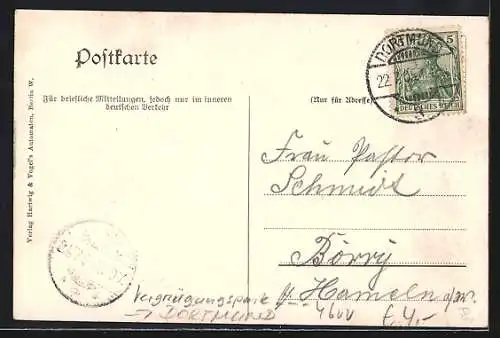 Postkarte
Für briefliche Mitteilungen, jedoch nur im inneren
deutschen Verkehr
(Nur für Adresse)
Verlag Hartwig & Vogel's Automaten, Berlin W.
DORTMUND
22.
5
DEUTSCHES REICH
Frau Pastor
Schmidt
Börry
Hameln a/W.
Vergnügungspark
→ DORTMUND
4600